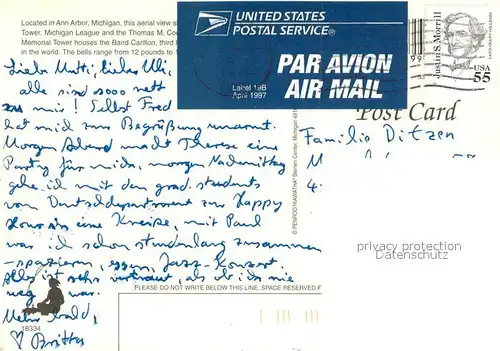 Located in Ann Arbor, Michigan, this aerial view
Tower, Michigan League and the Thomas M.
Memorial Tower houses the Baird Carillon, third
in the world. The bells range from 12 pounds to
UNITED STATES
POSTAL SERVICE
PAR AVION
AIR MAIL
Label 19B
April 1997
Justin S. Morrill
USA
55
Post Card
Liebe Mutti, liebes Uli,
alle sind sooo nett
zu mir! Selbst Fred
hat mich zur Begrüßung umarmt.
Morgen Abend macht Therese eine
Party für mich, morgen Nachmittag
gehe ich mit den grad. students
vom Deutschdepartment zur Happy
Hour in eine Kneipe, mit Paul
war ich schon stundenlang zusammen
- spazieren, essen, Jazz-Konzert.
Alles ist sehr vertraut, als ob ich nie
weg war.
Mehr bald,
♡ Britta
Familie Ditzen
4.
© PENROD/HIAWATHA Berrien Center, Michigan
privacy protection
Datenschutz
PLEASE DO NOT WRITE BELOW THIS LINE. SPACE RESERVED F
18334